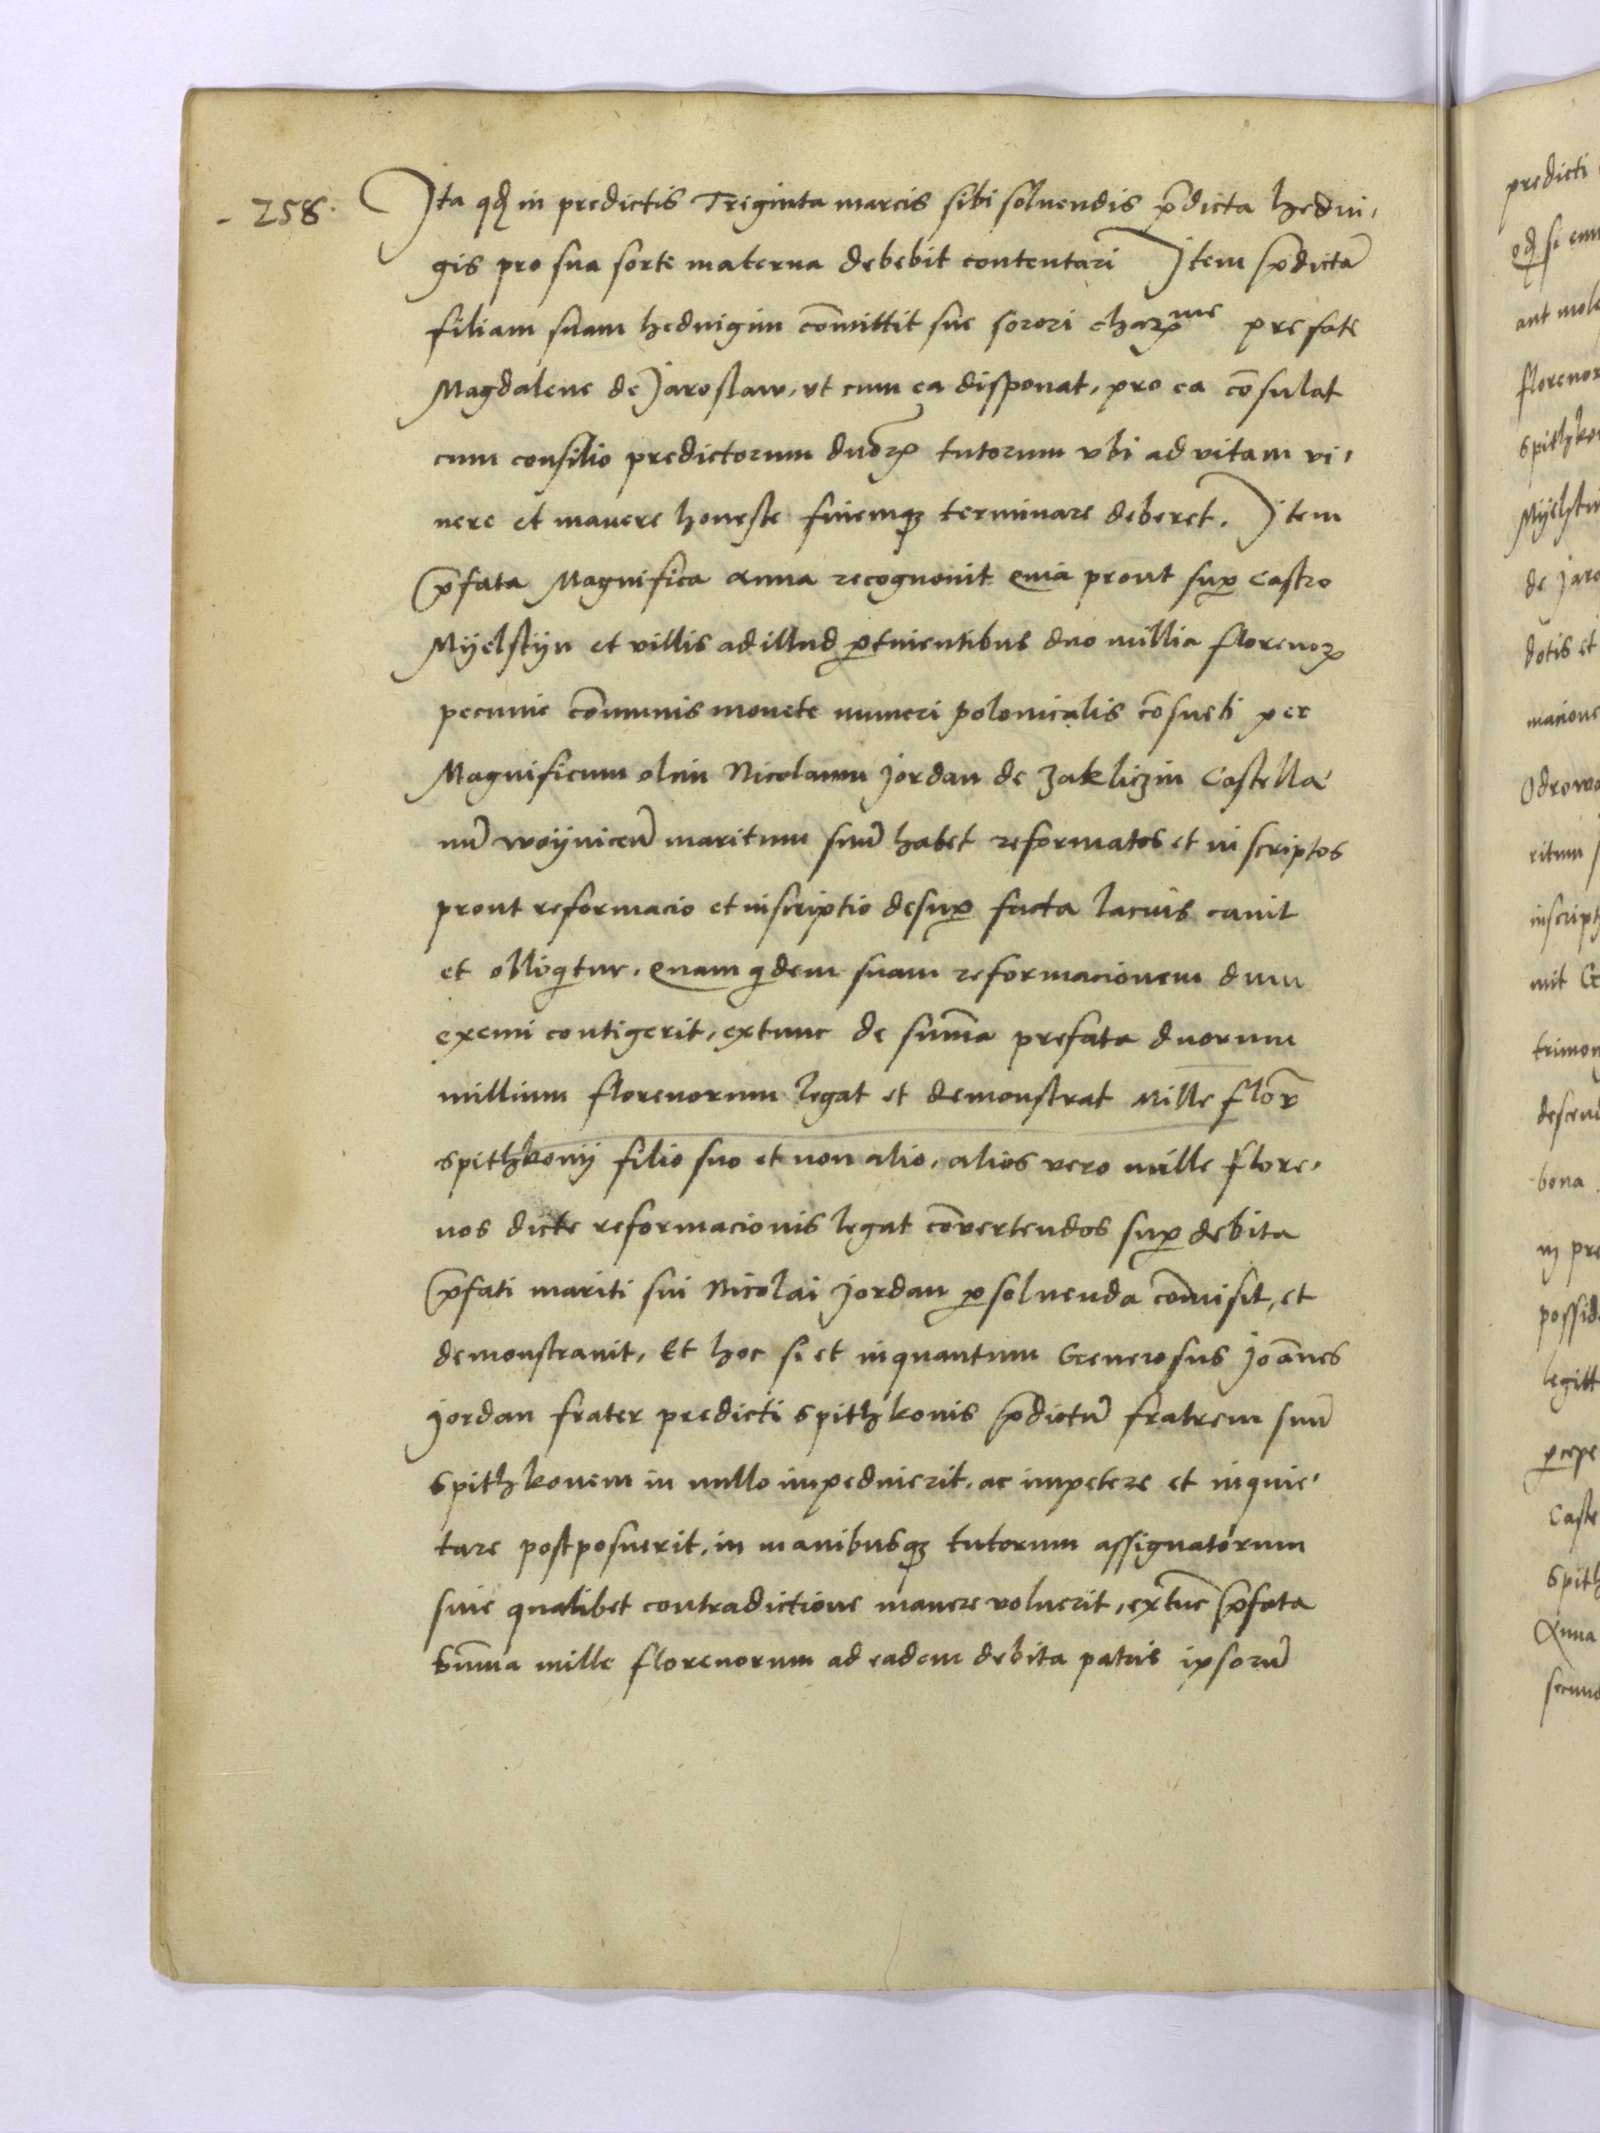 - 258.
Ita qd in predictis Triginta marcis sibi soluendis p̄dicta hedui,
gis pro sua sorte materna debebit contentari Item p̄dictā
filiam suam heduigim com̄ittit sue sorori charme prefate
Magdalene de Jaroslaw, vt cum ea disponat, pro ea cōsulat
cum consilio predictorum duorꝝ tutorum vbi ad vitam vi,
uere et manere honeste finemqꝫ terminare deberet. Item
p̄fata Magnifica Anna recognouit quia prout suꝑ Castro
Myelstyn et villis ad illud ꝑtinentibus duo millia florenorꝝ
pecunie com̄unis monete numeri polonicalis cōsueti per
Magnificum olim Nicolaum Jordan de Zakliczin Castella,
nū woyniceū maritum suū habet reformatos et in scriptos
prout reformacio et inscriptio desuꝑ facta lacius canit
et obligatur. Quam qdem suam reformacionem dum
exemi contigerit, extunc de sum̄a prefata duorum
millium florenorum legat et demonstrat Mille flor̄
spithkonij filio suo et non alio, alios vero mille flore,
nos dicte reformacionis legat cōuertendos suꝑ debita
p̄fati mariti sui Nicolai Jordan ꝑsoluenda com̄isit, et
demonstrauit, Et hoc si et inquantum Generosus Joānes
Jordan frater predicti spithkonis p̄dictū fratrem suū
spithkonem in nullo impedinierit, ac impetere et inquie,
tare postposuerit, in manibusqꝫ tutorum assignatorum
sine qualibet contradictione manere voluerit, extūc p̄fata
sum̄a mille florenorum ad eadem debita patris ipsorū
predicti
qd si
aut
florenor
spithko
Myelstin
de Jaro
dotis et
Odrowa
ritum
inscript
trimon
descend
bona
possid
legitt
Caste
spith
Anna